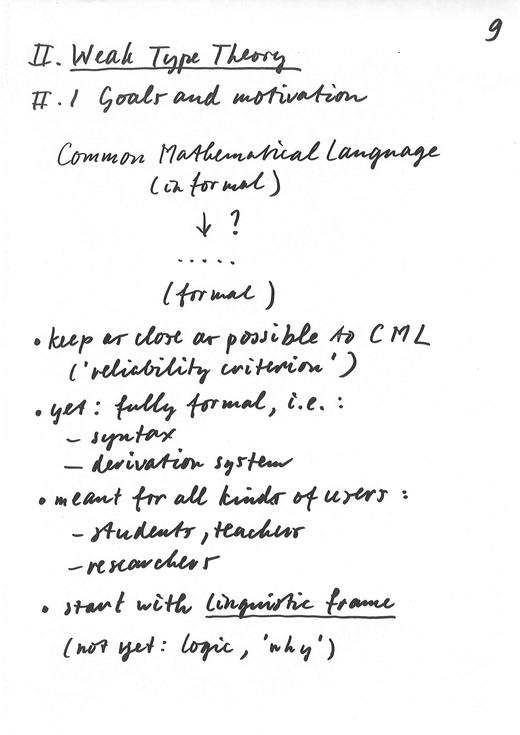 9
II. Weak Type Theory
II.1 Goals and motivation
Common Mathematical Language
(informal)
↓ ?
.....
(formal)
• keep as close as possible to CML
('reliability criterion')
• yet: fully formal, i.e.:
- syntax
- derivation system
• meant for all kinds of users:
- students, teachers
- researchers
• start with linguistic frame
(not yet: logic, 'why')